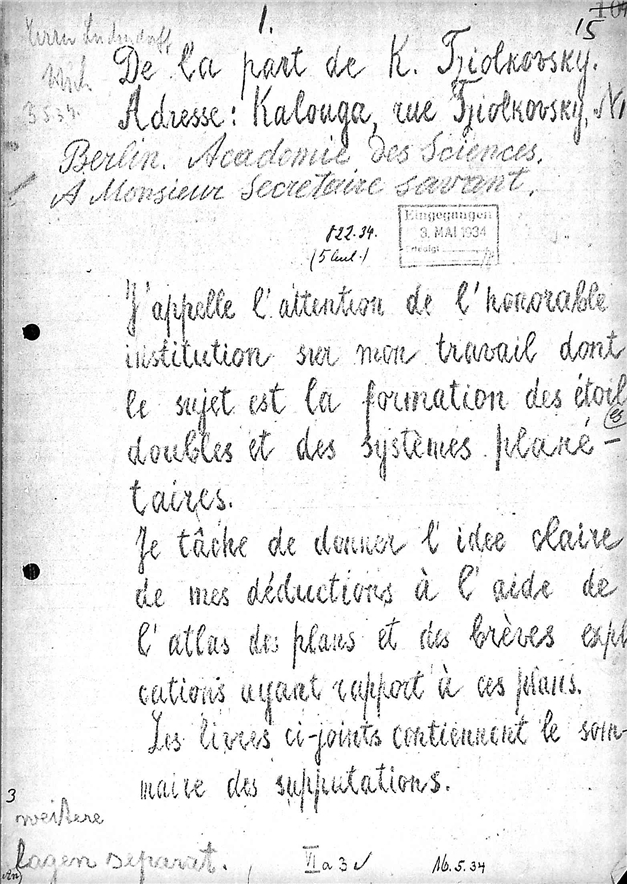 1.
15
104
Herrn Ludendorff
3 5 34.
De la part de K. Tziolkovsky.
Adresse: Kalouga, rue Tziolkovsky, N1
Berlin. Academie des Sciences.
A Monsieur Secretaire savant.
822.34.
Eingegangen
3. MAI 1934
J'appelle l'attention de l'honorable
institution sur mon travail dont
le sujet est la formation des étoil
es
doubles et des systèmes plané-
taires.
Je tâche de donner l'idee claire
de mes déductions à l'aide de
l'atlas des plans et des brèves expl
cations ayant rapport à ces plans.
Les livres ci-joints contiennent le som-
maire des supputations.
3
weitere
lagen separat.
VI a 3
16.5.34